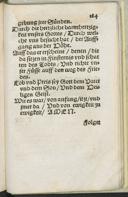 164
gibung jrer Sünden.
Durch die hertzliche barmhertzig-
keit vnsers Gottes / Durch wel-
che vns besucht hat / der Auff-
gang aus der Höhe.
Auff das er erscheine / denen / die
da sitzen in Finsternis vnd schat
ten des Todes / Vnd richte vn-
ser Füsse auff den weg des Frie-
den.
Lob vnd Preis sey Gott dem Vater
vnd dem Son / Vnd dem Hei-
ligen Geist.
Wie es war / von anfang / itzt / vnd
jmer da / Vnd von ewigkeit zu
ewigkeit / AMEN.
Folgen